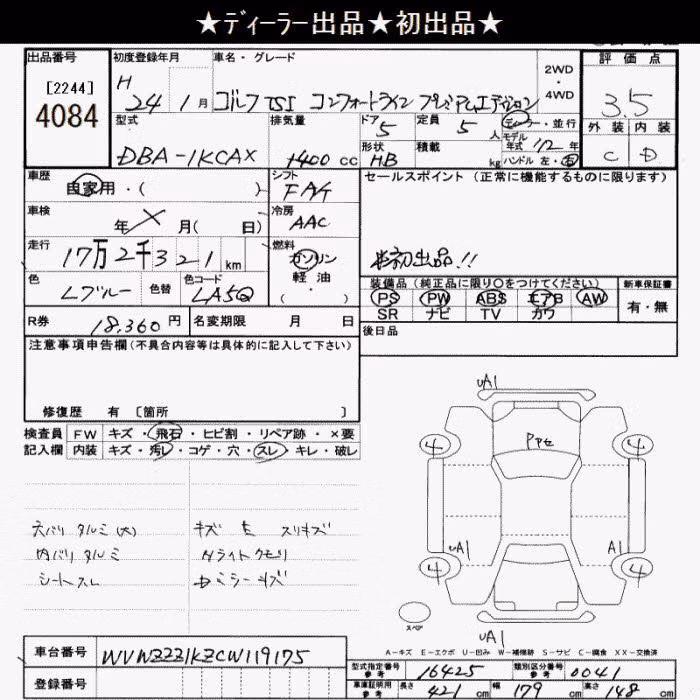 ★ディーラー出品★初出品★
出品番号
[2244]
4084
初度登録年月
H 24 1月
車名・グレード
ゴルフTSI コンフォートライン プレミアムエディション
2WD・4WD
評価点
3.5
外装 内装
C D
型式
DBA-1KCAX
排気量
1400 cc
ドア
5
形状
HB
定員
5 人
積載
kg
ディーラー・並行
モデル年式 '12 年
ハンドル 左・右
車歴
自家用・( )
シフト
FA7
セールスポイント (正常に機能するものに限ります)
※初出品!!
車検
年 月( 日)
冷房
AAC
走行
17万2千321km
燃料
ガソリン
軽油・
( )
色
Lブルー
色替
色コード
LA5Q
装備品(純正品に限り○をつけてください)
PS PW ABS エアB AW
SR ナビ TV カワ
新車保証書
有・無
R券
18,360円
名変期限 月 日
後日品
注意事項申告欄(不具合内容等は具体的に記入して下さい)
修復歴 有 〔箇所 〕
検査員記入欄
FW キズ・飛石・ヒビ割・リペア跡・×要
内装 キズ・汚レ・コゲ・穴・スレ・キレ・破レ
天バリ タルミ(大)
内バリ タルミ
シートスレ
キズ E スリキズ
Hライトクモリ
ミラーキズ
UA1
4 4
UA1 A1
4 4
スペア
UA1
A-キズ E-エクボ U-凹み W-補修跡 S-サビ C-腐食 XX-交換済
車台番号
WVWZZZ1KZCW119175
登録番号
型式指定番号
参考
16425
類別区分番号
参考
0041
車庫証明用
参考
長さ 421 cm 幅 179 cm 高さ 148 cm